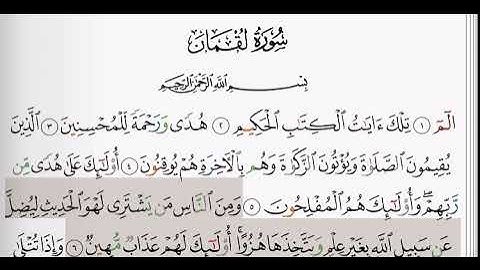 سُورَةُ لُقْمَان
بِسْمِ اللَّهِ الرَّحْمَٰنِ الرَّحِيمِ
الٓمٓ ١ تِلْكَ ءَايَٰتُ ٱلْكِتَٰبِ ٱلْحَكِيمِ ٢ هُدًى وَرَحْمَةً لِّلْمُحْسِنِينَ ٣ ٱلَّذِينَ
يُقِيمُونَ ٱلصَّلَوٰةَ وَيُؤْتُونَ ٱلزَّكَوٰةَ وَهُم بِٱلْءَاخِرَةِ هُمْ يُوقِنُونَ ٤ أُو۟لَٰٓئِكَ عَلَىٰ هُدًى مِّن
رَّبِّهِمْ ۖ وَأُو۟لَٰٓئِكَ هُمُ ٱلْمُفْلِحُونَ ٥ وَمِنَ ٱلنَّاسِ مَن يَشْتَرِى لَهْوَ ٱلْحَدِيثِ لِيُضِلَّ
عَن سَبِيلِ ٱللَّهِ بِغَيْرِ عِلْمٍ وَيَتَّخِذَهَا هُزُوًا ۚ أُو۟لَٰٓئِكَ لَهُمْ عَذَابٌ مُّهِينٌ ٦ وَإِذَا تُتْلَىٰ